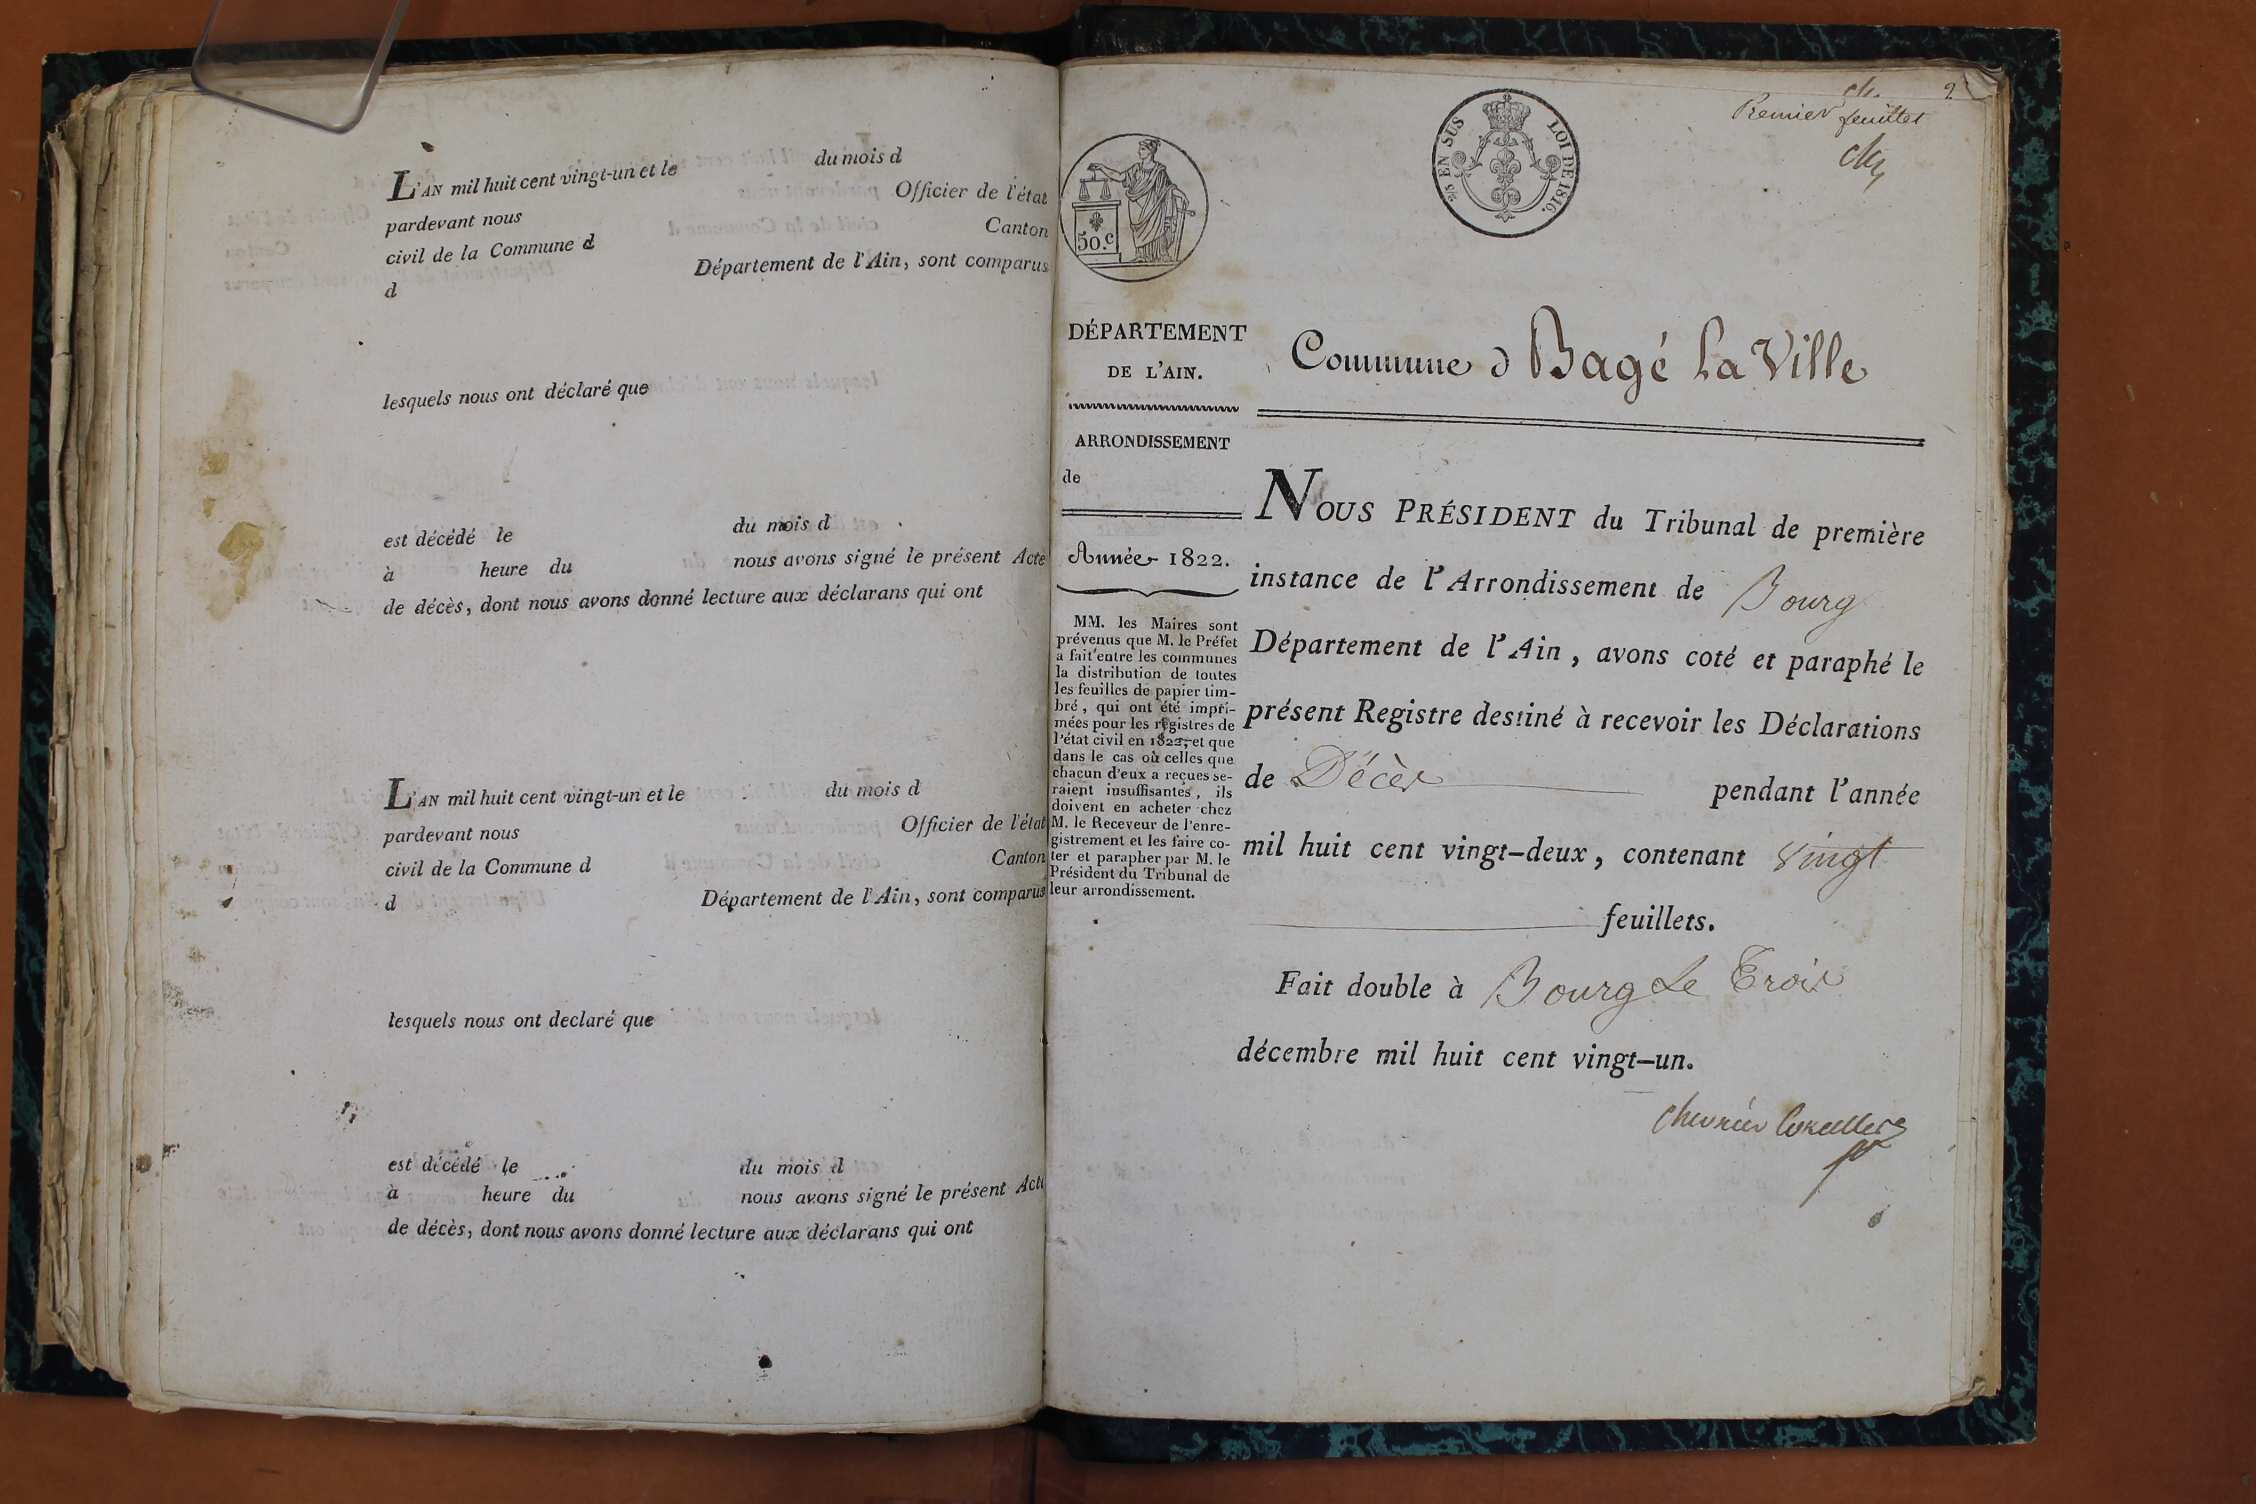 L'AN mil huit cent vingt-un et le du mois d
pardevant nous Officier de l'état
civil de la Commune d Canton
d Département de l'Ain, sont comparus
lesquels nous ont déclaré que
est décédé le du mois d
à heure du nous avons signé le présent Acte
de décès, dont nous avons donné lecture aux déclarans qui ont
L'AN mil huit cent vingt-un et le du mois d
pardevant nous Officier de l'état
civil de la Commune d Canton
d Département de l'Ain, sont comparus
lesquels nous ont declaré que
est décédé le du mois d
à heure du nous avons signé le présent Acte
de décès, dont nous avons donné lecture aux déclarans qui ont
2
Premier feuillet
50.c
EN SUS LOI DE 1816.
DÉPARTEMENT
DE L'AIN.
ARRONDISSEMENT
de
Année 1822.
MM. les Maires sont
prévenus que M. le Préfet
a fait entre les communes
la distribution de toutes
les feuilles de papier tim-
bré, qui ont été impri-
mées pour les registres de
l'état civil en 1822, et que
dans le cas où celles que
chacun d'eux a reçues se-
raient insuffisantes, ils
doivent en acheter chez
M. le Receveur de l'enre-
gistrement et les faire co-
ter et parapher par M. le
Président du Tribunal de
leur arrondissement.
Commune d Bagé La Ville
NOUS PRÉSIDENT du Tribunal de première
instance de l'Arrondissement de Bourg
Département de l'Ain, avons coté et paraphé le
présent Registre destiné à recevoir les Déclarations
de Décès pendant l'année
mil huit cent vingt-deux, contenant vingt
feuillets.
Fait double à Bourg Le Trois
décembre mil huit cent vingt-un.